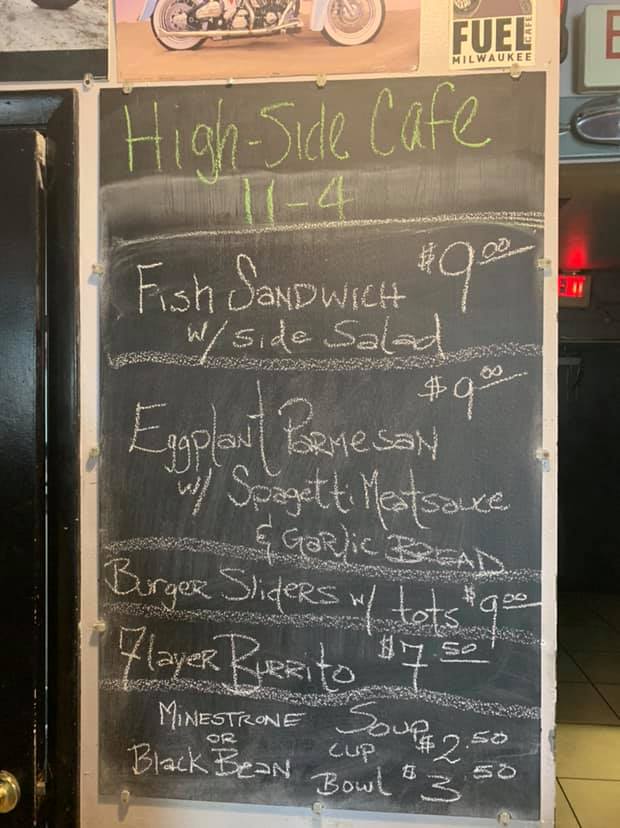 FUEL
CAFE
MILWAUKEE
High-Side Cafe
11-4
Fish SANDWICH $9.00
w/ side Salad
$9.00
Eggplant PARMESAN
w/ Spagetti Meatsauce
& GaRlic BREAD
Burger SlideRs w/ tots $9.00
7layeR BURRito $7.50
MINESTRONE Soup
OR CUP $2.50
Black Bean Bowl $3.50